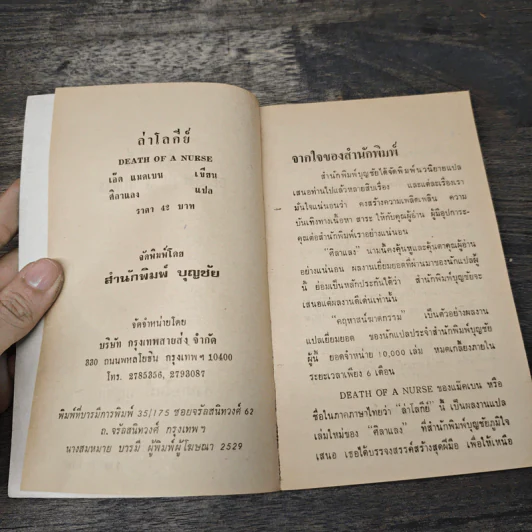 ล่าโลกีย์
DEATH OF A NURSE
เอ็ด แมคเบน เขียน
ศิลาแลง แปล
ราคา 42 บาท
จัดพิมพ์โดย
สำนักพิมพ์ บุญชัย
จัดจำหน่ายโดย
บริษัท กรุงเทพสายส่ง จำกัด
330 ถนนพหลโยธิน กรุงเทพฯ 10400
โทร. 2785356, 2793087
พิมพ์ที่บารมีการพิมพ์ 35/175 ซอยจรัลสนิทวงศ์ 62
ถ.จรัลสนิทวงศ์ กรุงเทพฯ
นางสมหมาย บารมี ผู้พิมพ์ผู้โฆษณา 2529
จากใจของสำนักพิมพ์
สำนักพิมพ์บุญชัยได้จัดพิมพ์นวนิยายแปล
เสนอท่านไปแล้วหลายสิบเรื่อง และแต่ละเรื่องเรา
มั่นใจแน่นอนว่า คงสร้างความเพลิดเพลิน ความ
บันเทิงทางเนื้อหา สาระ ให้กับคุณผู้อ่าน ผู้มีอุปการะ-
คุณต่อสำนักพิมพ์เราอย่างแน่นอน
“ศิลาแลง” นามนี้คงคุ้นหูและคุ้นตาคุณผู้อ่าน
อย่างแน่นอน ผลงานเยี่ยมยอดที่ผ่านมาของนักแปลผู้
นี้ ย่อมเป็นหลักประกันได้ว่า สำนักพิมพ์บุญชัยจะ
เสนอแต่ผลงานดีเด่นเท่านั้น
“คฤหาสน์ฆาตกรรม” เป็นตัวอย่างผลงาน
แปลเยี่ยมยอด ของนักแปลประจำสำนักพิมพ์บุญชัย
ผู้นี้ ยอดจำหน่าย 10,000 เล่ม หมดเกลี้ยงภายใน
ระยะเวลาเพียง 6 เดือน
DEATH OF A NURSE ของแม๊คเบน หรือ
ชื่อในภาคภาษาไทยว่า “ล่าโลกีย์” นี้ เป็นผลงานแปล
เล่มใหม่ของ “ศิลาแลง” ที่สำนักพิมพ์บุญชัยภูมิใจ
เสนอ เธอได้บรรจงสรรค์สร้างสุดฝีมือ เพื่อให้เหนือ